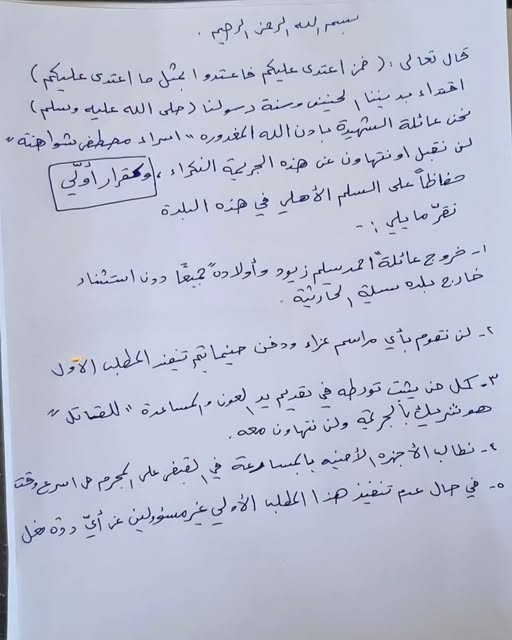 بسم الله الرحمن الرحيم .
قال تعالى : ( فمن اعتدى عليكم فاعتدوا بمثل ما اعتدى عليكم )
اقتداء بديننا الحنيف وسنة رسولنا ( صلى الله عليه وسلم )
نحن عائلة الشهيدة بإذن الله المغدوره " اسراء مصطفى شواهنة "
لن نقبل او نتهاون عن هذه الجريمة النكراء ، وكقرار أوّلي
حفاظاً على السلم الأهلي في هذه البلدة
نقرّ ما يلي : -
١- خروج عائلة " احمد سلم زيود وأولاده " جميعًا دون استثناء
خارج بلده سيلة الحارثية .
٢- لن نقوم بأي مراسم عزاء ودفن حينما يتم تنفيذ المطلب الأول
٣- كل من يثبت تورطه في تقديم يد العون والمساعدة " للقاتل "
هو شريك بالجريمة ولن نتهاون معه .
٤- نطالب الأجهزه الأمنيه بالمسارعة في القبض على المجرم من اسرع وقت
٥- في حال عدم تنفيذ هذا المطلب الأولي غير مسؤولين عن أيّ ردة فعل